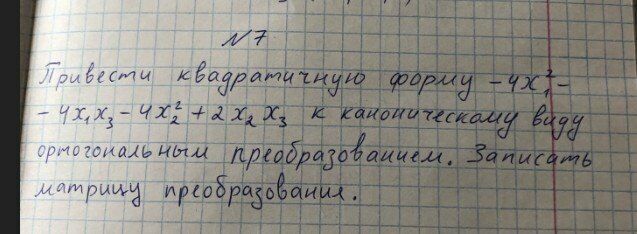 №7
Привести квадратичную форму -4x₁² -
- 4x₁x₃ - 4x₂² + 2x₂x₃ к каноническому виду
ортогональным преобразованием. Записать
матрицу преобразования.